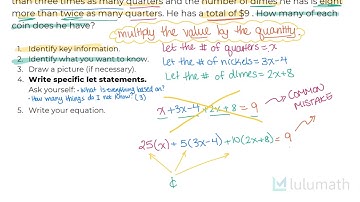 than three times as many quarters and the number of dimes he has is eight
more than twice as many quarters. He has a total of $9. How many of each
coin does he have?
multiply the value by the quantity
1. Identify key information.
2. Identify what you want to know.
3. Draw a picture (if necessary).
4. Write specific let statements.
Ask yourself: - What is everything based on?
- How many things do I not know? (3)
5. Write your equation.
let the # of quarters = x
let the # of nickels = 3x-4
let the # of dimes = 2x+8
x + 3x-4 + 2x+8 = 9
COMMON
MISTAKE
25(x) + 5(3x-4) + 10(2x+8) = 9
¢
lulumath